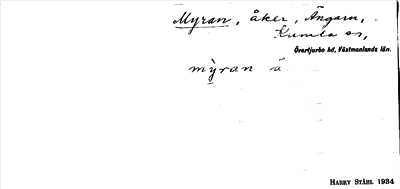 Myran, åker, Ängarn,
Kumla sn,
Övertjurbo hd, Västmanlands län.
mỳran å
HARRY STÅHL 1934